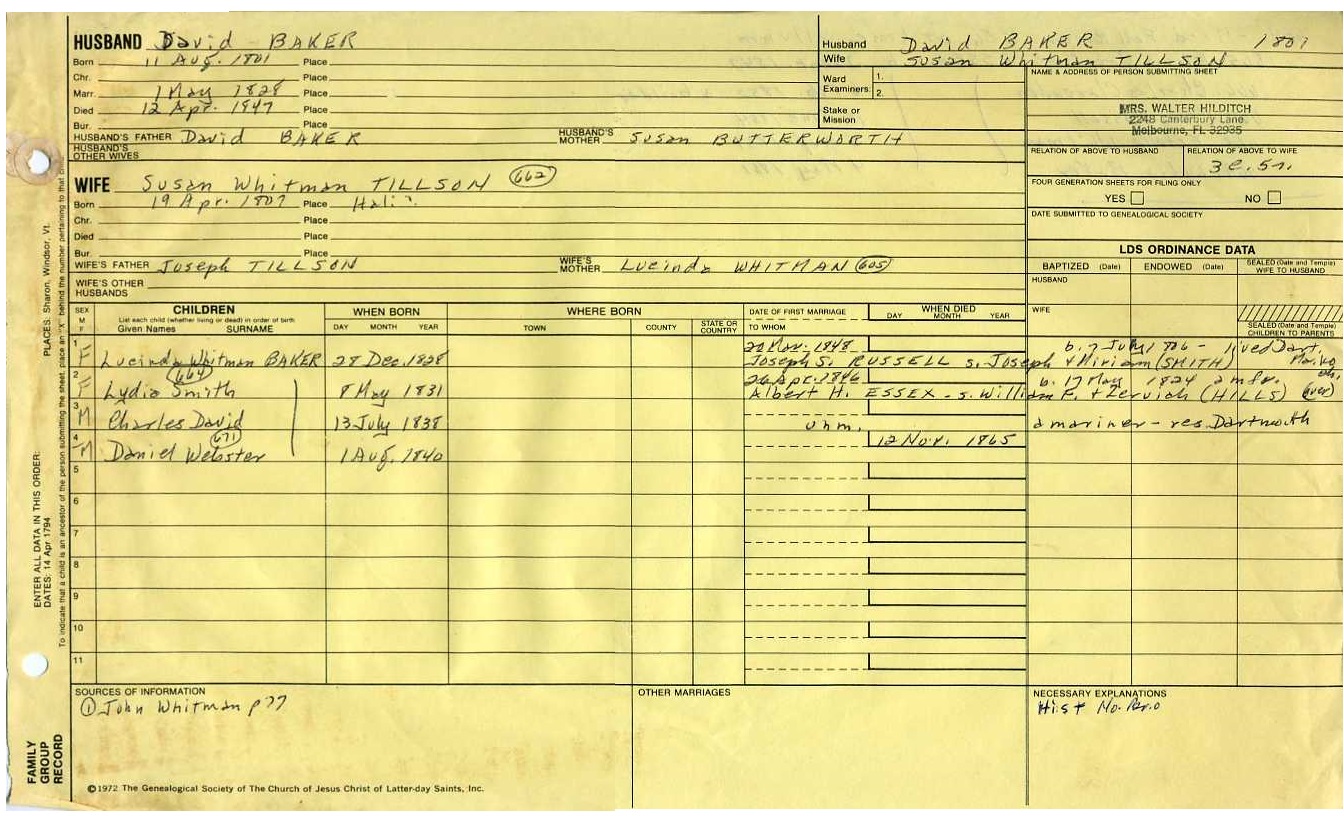 HUSBAND David BAKER
Born 11 Aug. 1801 Place
Chr. Place
Marr. 1 May 1828 Place
Died 12 Apr. 1847 Place
Bur. Place
HUSBAND'S FATHER David BAKER HUSBAND'S MOTHER Susan BUTTERWORTH
HUSBAND'S OTHER WIVES
Husband David BAKER 1801
Wife Susan Whitman TILLSON
Ward Examiners 1. 2.
Stake or Mission
NAME & ADDRESS OF PERSON SUBMITTING SHEET
MRS. WALTER HILDITCH
2248 Canterbury Lane
Melbourne, FL 32935
RELATION OF ABOVE TO HUSBAND RELATION OF ABOVE TO WIFE
FOUR GENERATION SHEETS FOR FILING ONLY
YES NO
DATE SUBMITTED TO GENEALOGICAL SOCIETY
WIFE Susan Whitman TILLSON 662
Born 19 Apr. 1807 Place
Chr. Place
Died Place
Bur. Place
WIFE'S FATHER Joseph TILLSON WIFE'S MOTHER Lucinda WHITMAN 605
WIFE'S OTHER HUSBANDS
LDS ORDINANCE DATA
BAPTIZED (Date) ENDOWED (Date) SEALED (Date and Temple) WIFE TO HUSBAND
HUSBAND
WIFE
SEALED (Date and Temple) CHILDREN TO PARENTS
SEX M F CHILDREN WHEN BORN WHERE BORN DATE OF FIRST MARRIAGE WHEN DIED
List each child (whether living or dead) in order of birth
Given Names SURNAME DAY MONTH YEAR TOWN COUNTY STATE OR COUNTRY TO WHOM DAY MONTH YEAR
1 20 Nov. 1848 b. 7 July
F Lucinda Whitman BAKER 28 Dec. 1828 Joseph S. RUSSELL s. Joseph & Miriam (SMITH)
2 664 26 Apr. 1846 b. 17 May 1824 a mfr.
F Lydia Smith 8 May 1831 Albert H. ESSEX - s. William F. + (HILLS) (over)
3
M Charles David 13 July 1838 unm. a mariner - res. Dartmouth
4 671 12 Nov. 1865
M Daniel Webster 1 Aug. 1840
5
6
7
8
9
10
11
SOURCES OF INFORMATION
① John Whitman p 77
OTHER MARRIAGES
NECESSARY EXPLANATIONS
Hist
©1972 The Genealogical Society of The Church of Jesus Christ of Latter-day Saints, Inc.
FAMILY GROUP RECORD
ENTER ALL DATA IN THIS ORDER:
DATES: 14 Apr 1794
PLACES: Sharon, Windsor, Vt.
To indicate that a child is an ancestor of the person submitting the sheet, place an "X" behind the number pertaining to that